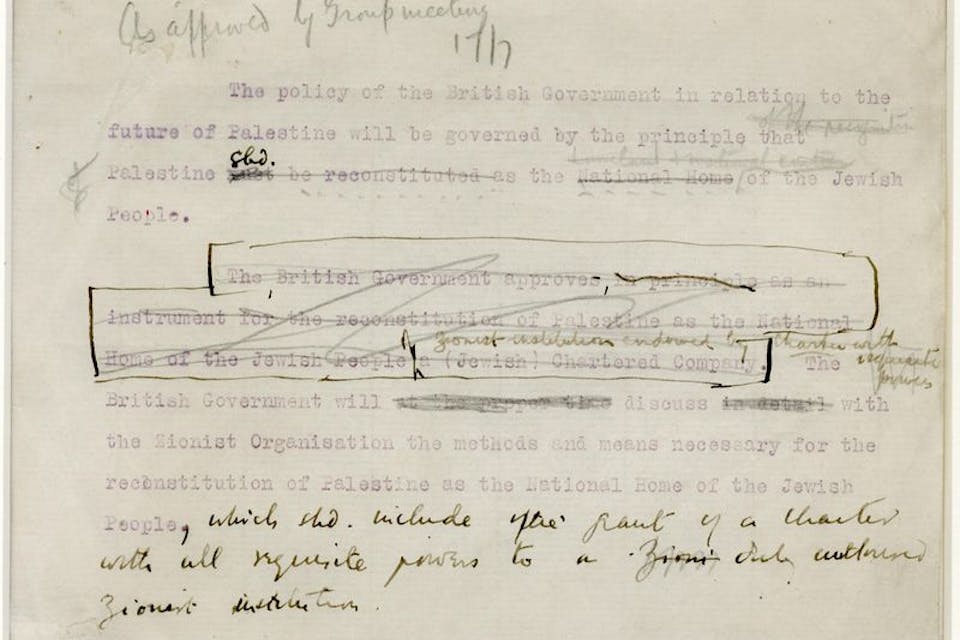 As approved by Group meeting
17/7
The policy of the British Government in relation to the
of the recognition
future of Palestine will be governed by the principle that
shd.
Palestine must be reconstituted as the National Home of the Jewish
People.
The British Government approves, in principle as an
instrument for the reconstitution of Palestine as the National
Zionist institution endowed by Charter with
Home of the Jewish People a (Jewish) Chartered Company. The
requisite powers
British Government will at the proper time discuss in detail with
the Zionist Organisation the methods and means necessary for the
reconstitution of Palestine as the National Home of the Jewish
People, which shd. include the grant of a Charter
with all requisite powers to a Zioni duly authorised
Zionist institution.